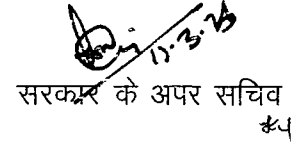 17.3.25
सरकार के अपर सचिव